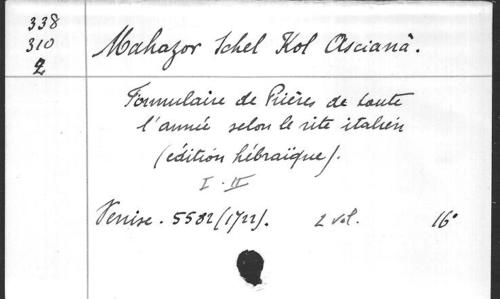 338
310
2
Mahazor Schel Kol Ascianà.
Formulaire de Prières de toute
l'année selon le rite italien
(édition hébraïque).
I - II
Venise. 5582 (1722). 2 vol. 16°